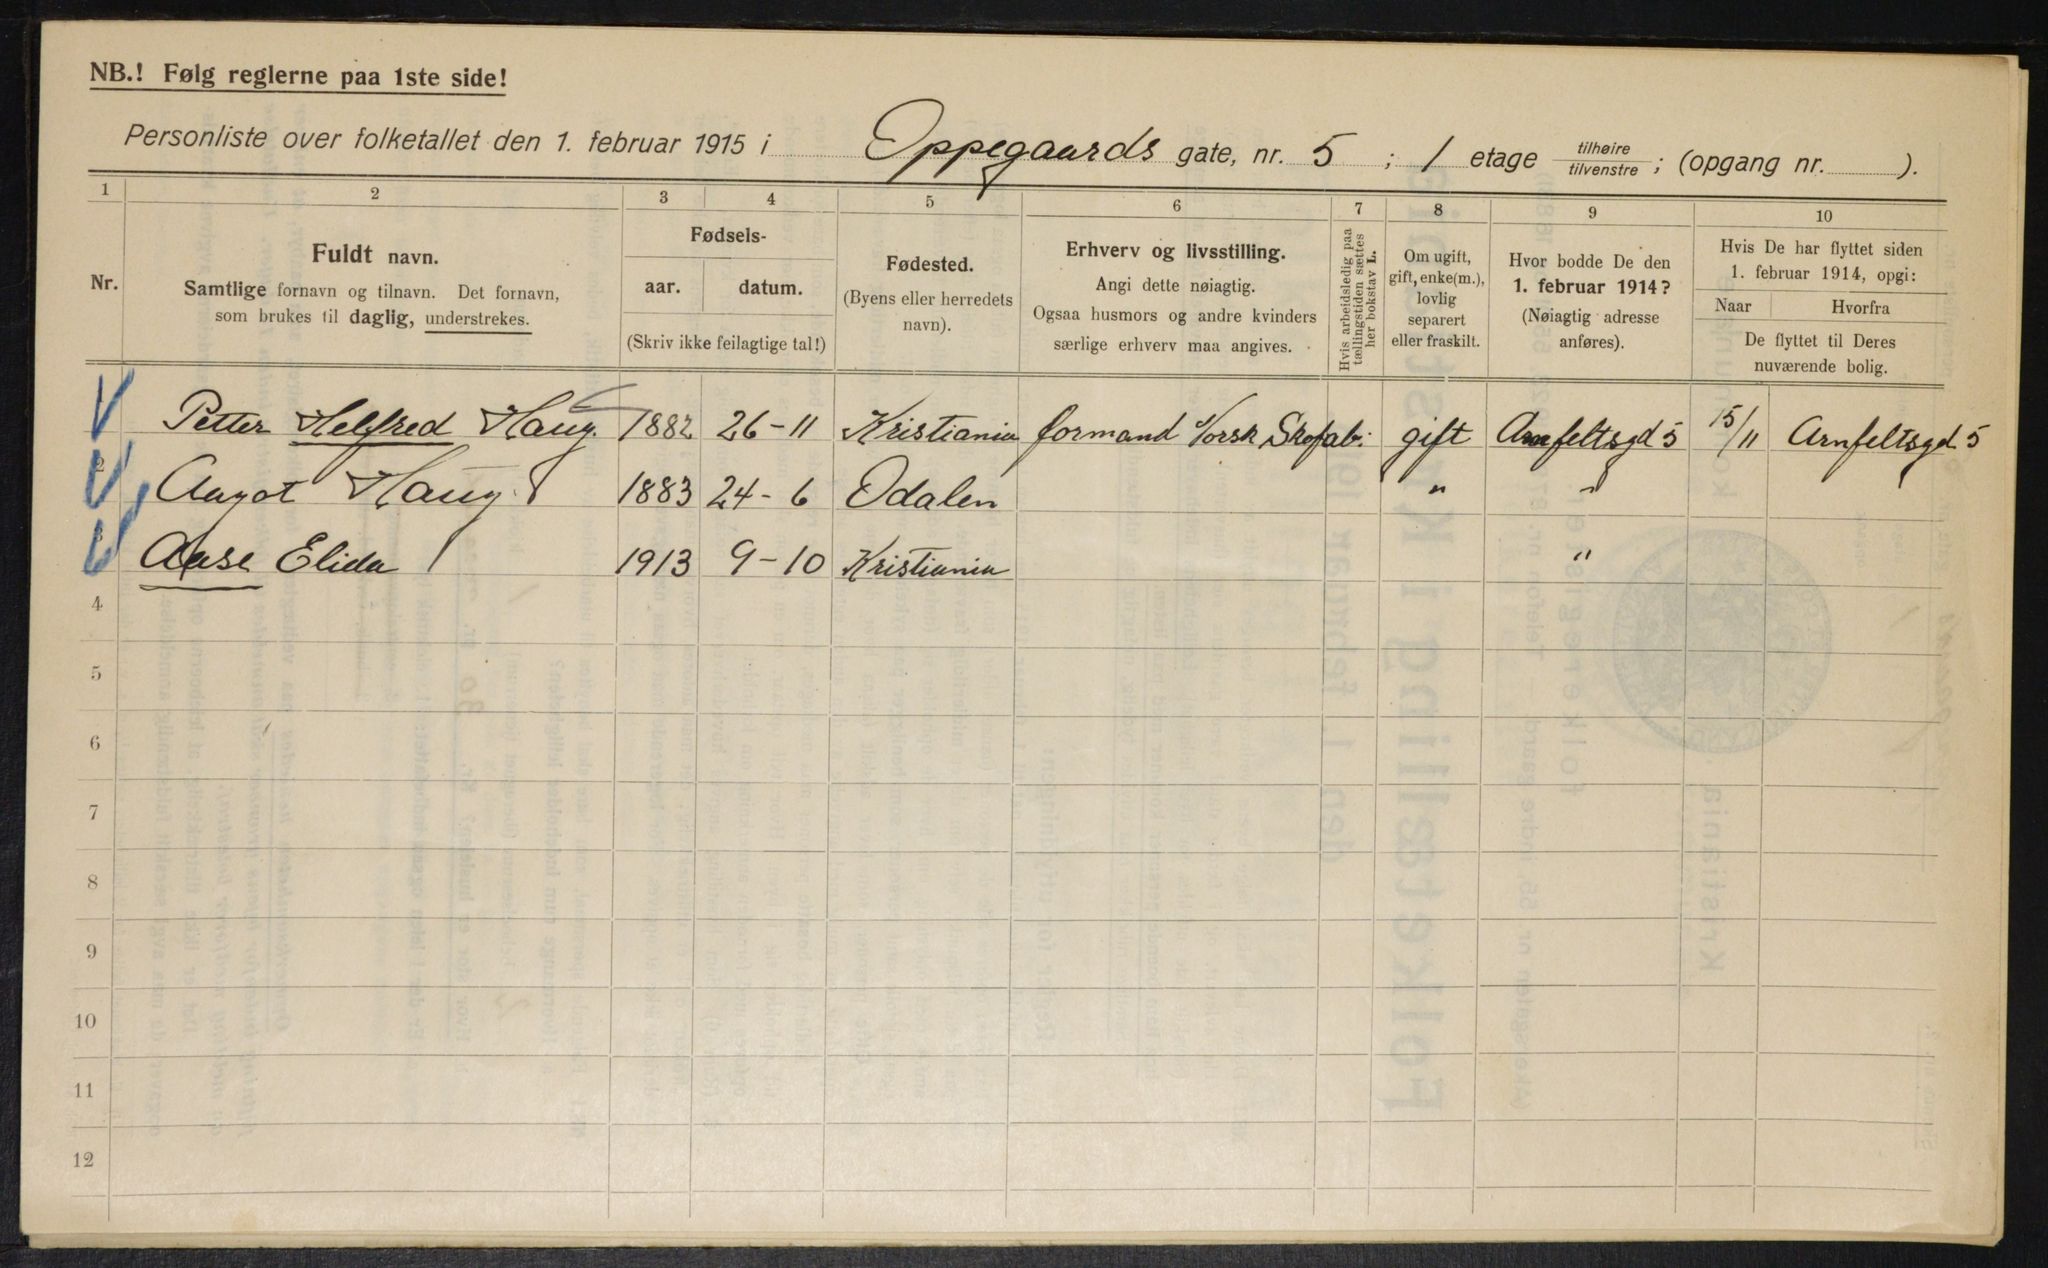 NB.! Følg reglerne paa 1ste side!
Personliste over folketallet den 1. februar 1915 i Oppegaards gate, nr. 5 ; 1 etage tilhøire / tilvenstre ; (opgang nr. ).
1 2 3 4 5 6 7 8 9 10
Nr.
Fuldt navn.
Samtlige fornavn og tilnavn. Det fornavn,
som brukes til daglig, understrekes.
Fødsels-
aar. datum.
(Skriv ikke feilagtige tal!)
Fødested.
(Byens eller herredets
navn).
Erhverv og livsstilling.
Angi dette nøiagtig.
Ogsaa husmors og andre kvinders
særlige erhverv maa angives.
Hvis arbeidsledig paa
tællingstiden sættes
her bokstav L.
Om ugift,
gift, enke(m.),
lovlig
separert
eller fraskilt.
Hvor bodde De den
1. februar 1914?
(Nøiagtig adresse
anføres).
Hvis De har flyttet siden
1. februar 1914, opgi:
Naar Hvorfra
De flyttet til Deres
nuværende bolig.
Petter Helfred Haug. 1882 26-11 Kristiania formand Norsk Skofab. gift Arnfeltsgd 5 15/11 Arnfeltsgd. 5
Aagot Haug 1883 24-6 Odalen " "
Aase Elida 1913 9-10 Kristiania "
4
5
6
7
8
9
10
11
12